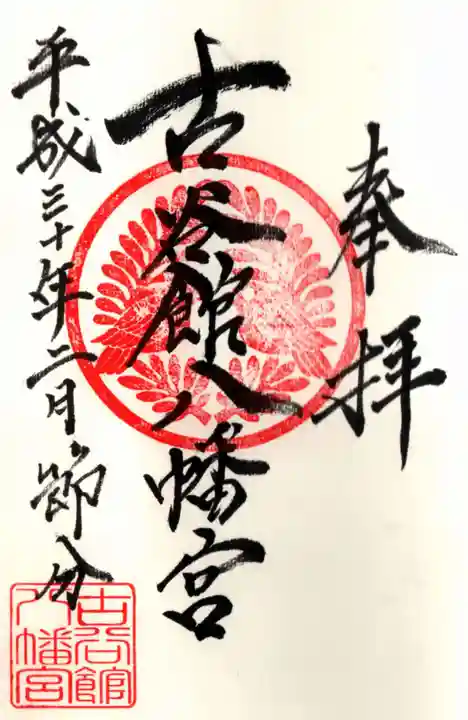 奉拝
古谷館八幡宮
平成三十年二月節分
古谷館
八幡宮